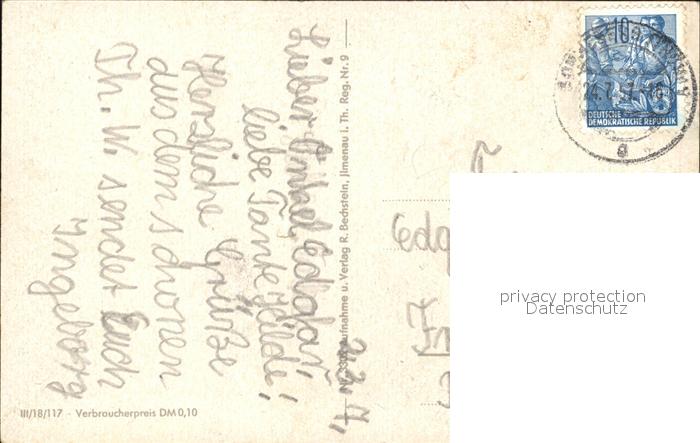 Lieber Onkel Edgar!
liebe Tante Hilde!
Herzliche Grüße
aus dem schönen
Th. W. sendet Euch
Ingeborg
23.7.
Aufnahme u. Verlag R. Bechstein, Jlmenau i. Th. Reg. Nr. 9
III/18/117 - Verbraucherpreis DM 0,10
10
DEUTSCHE
DEMOKRATISCHE REPUBLIK
24.7.
a
Edg
privacy protection
Datenschutz